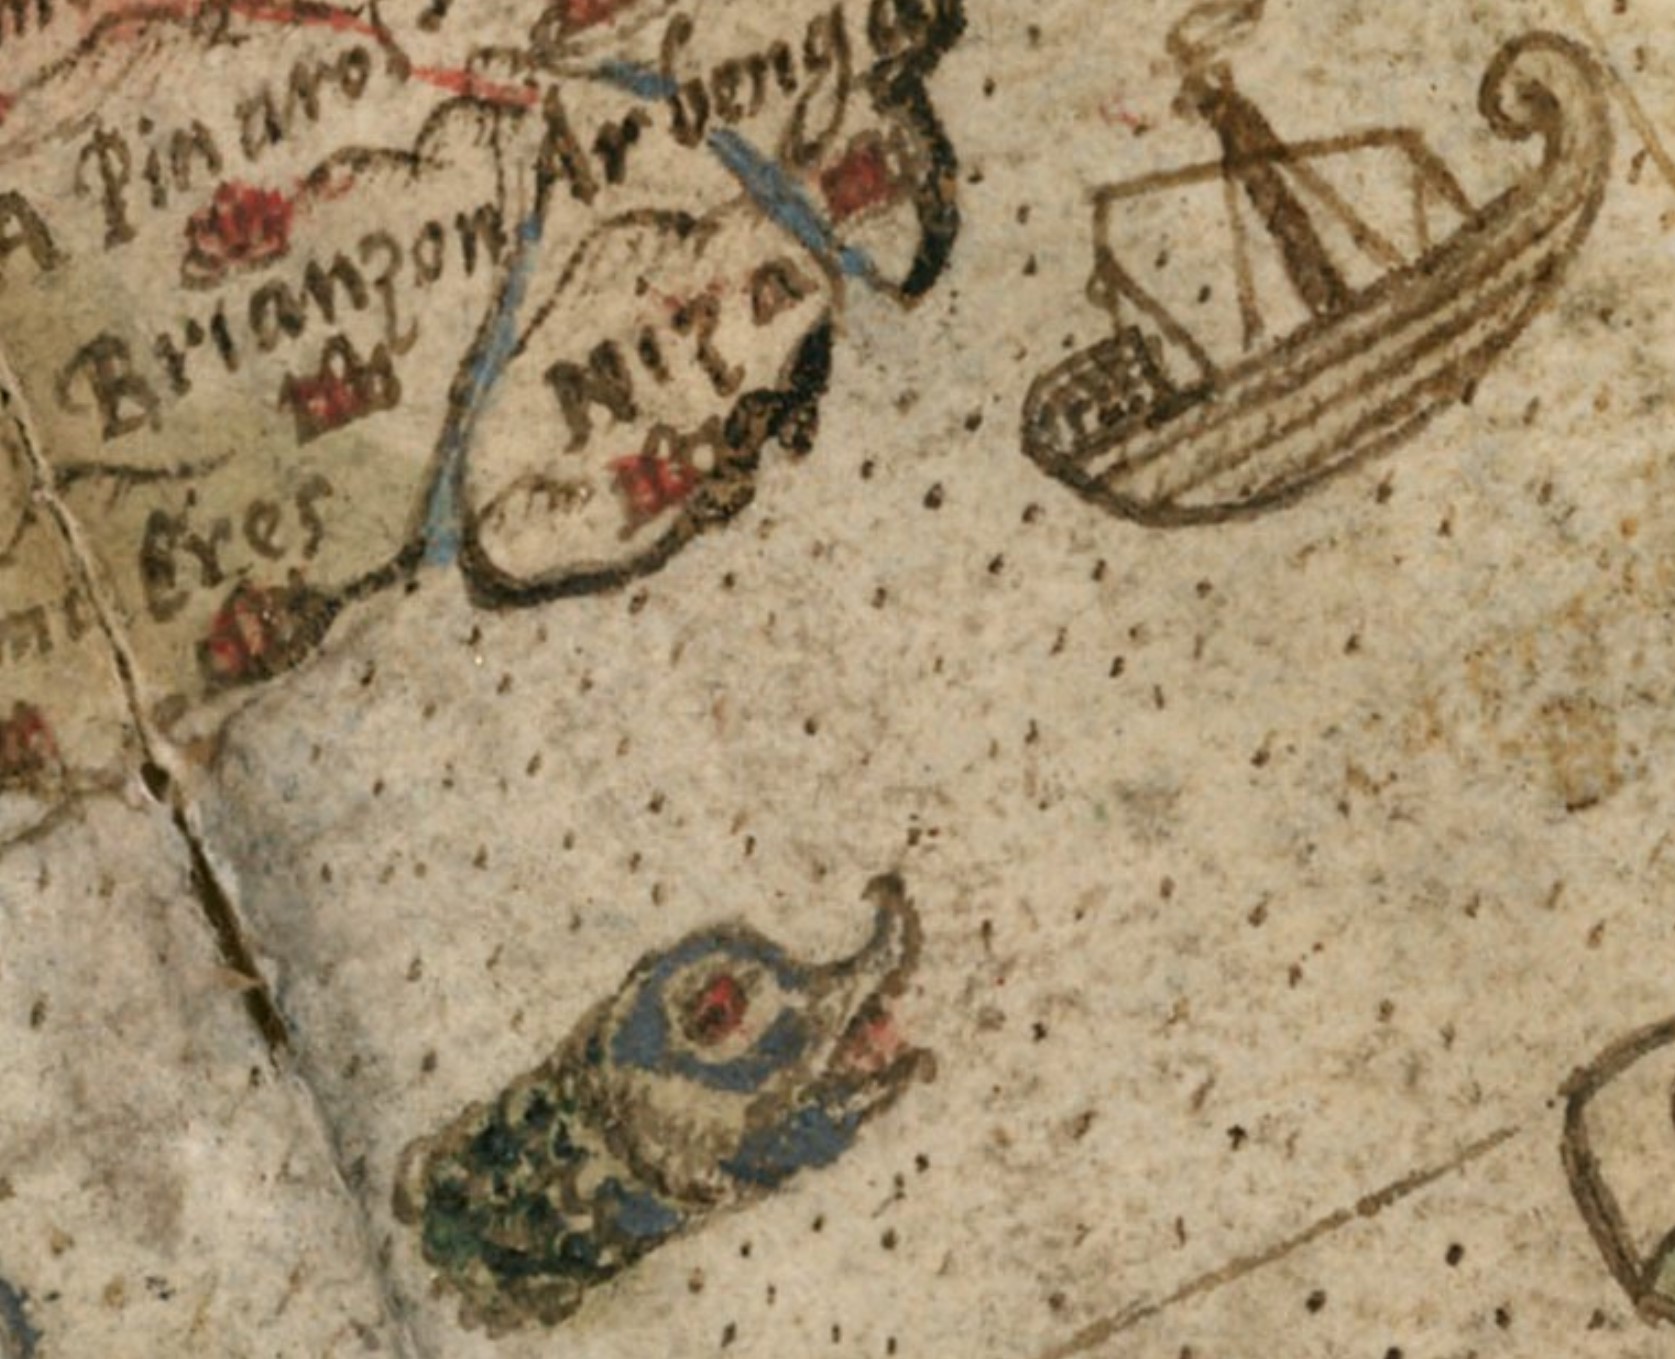 Pinaro
Arbenga
Brianzon
Niza
Eres